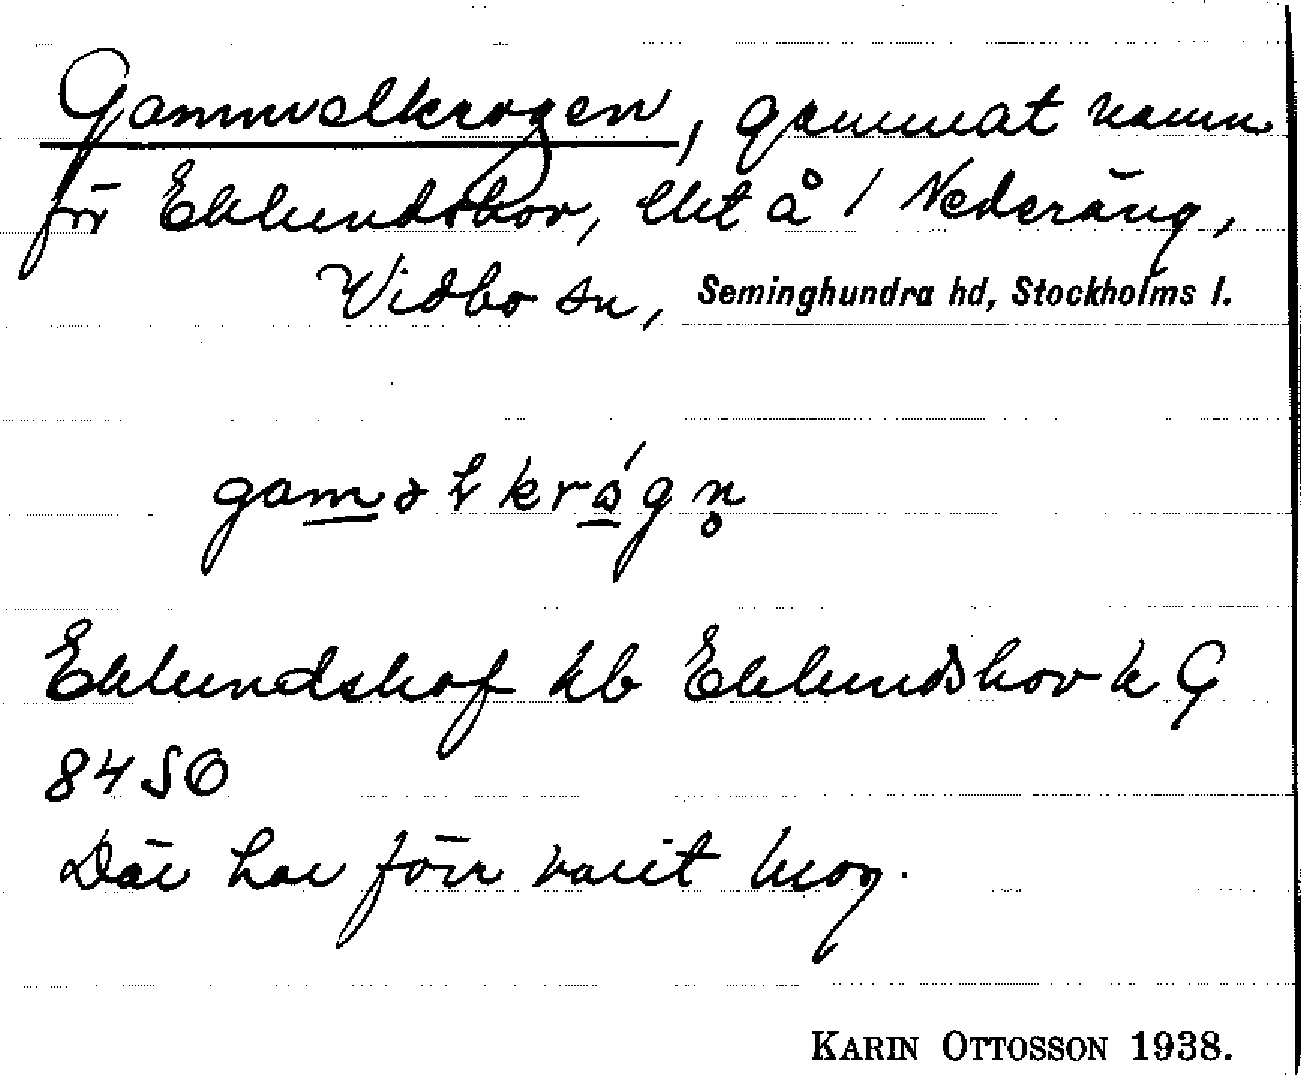 Gammelkrogen, gammat namn
för Eklundshov, lht å 1 Nederäng,
Vidbo sn, Seminghundra hd, Stockholms l.
gaməlkrógn̥
Eklundshof kb Eklundshov k G
84 SO
Där har förr varit krog.
KARIN OTTOSSON 1938.